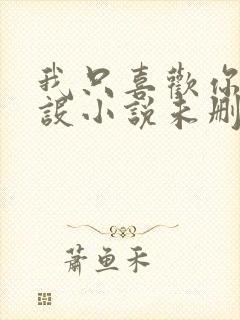 我只喜歡你
設小說未刪
蕭魚禾